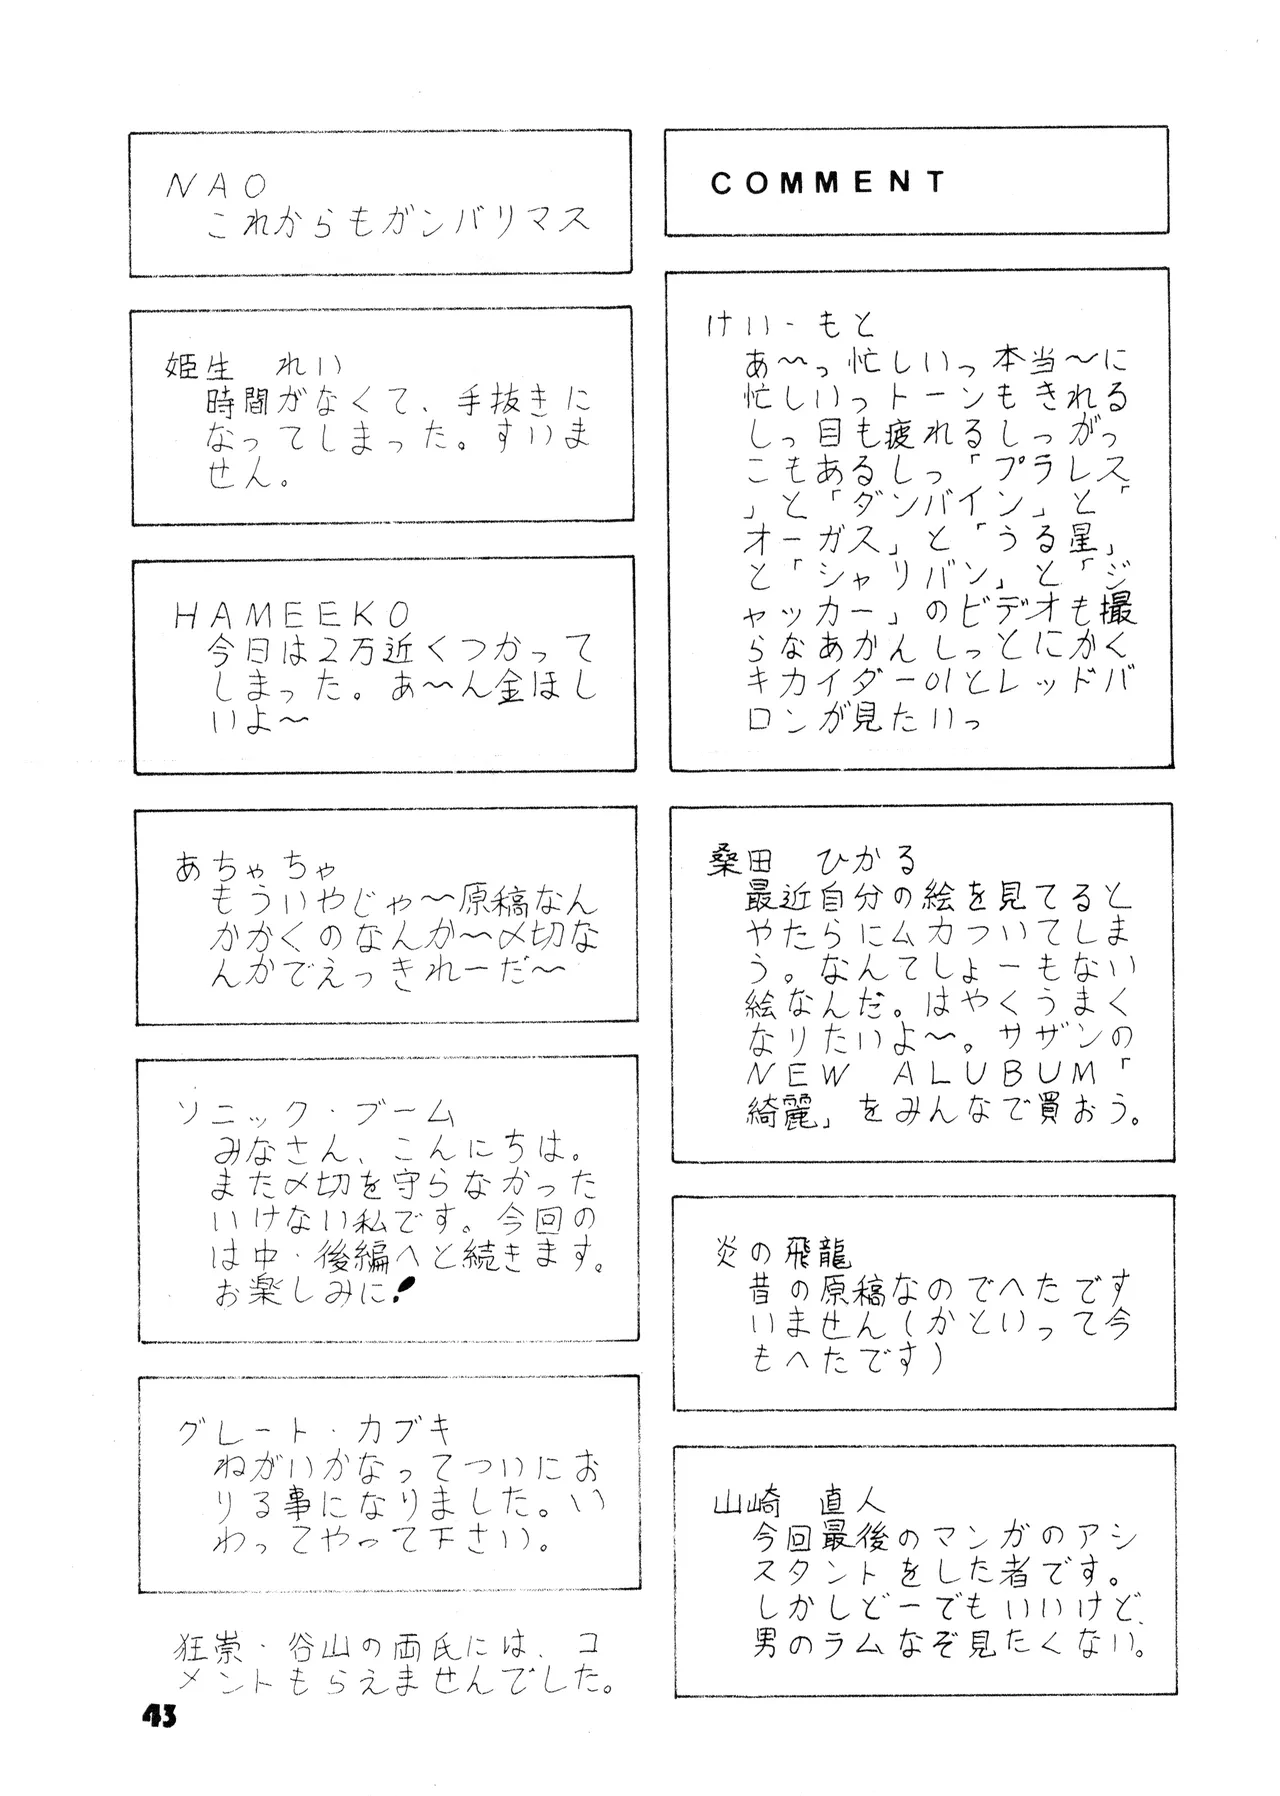 COMMENT
けい・もと
あ〜っ忙しいっ本当〜に
忙しいっトーンもきれる
しっ目も疲れるしっがっ
こもあるしっ「プラレス
」と「ダンバイン」と「
オーガス」と「うる星」
と「シャリバン」と「ジ
ャッカー」のビデオも撮
らなあかんしっとにかく
キカイダー01とレッドバ
ロンが見たいっ
桑田 ひかる
最近自分の絵を見てると
やたらにムカついてしま
う。なんてしょーもない
絵なんだ。はやくうまく
なりたいよ〜。サザンの
NEW ALUBUM「
綺麗」をみんなで買おう。
炎の飛龍
昔の原稿なのでへたです
いません(かといって今
もへたです)
山崎 直人
今回最後のマンガのアシ
スタントをした者です。
しかしどーでもいいけど、
男のラムなぞ見たくない。
NAO
これからもガンバリマス
姫生 れい
時間がなくて、手抜きに
なってしまった。すいま
せん。
HAMEEKO
今日は2万近くつかって
しまった。あ〜ん金ほし
いよ〜
あちゃちゃ
もういやじゃ〜原稿なん
かかくのなんか〜〆切な
んかでえっきれーだ〜
ソニック・ブーム
みなさん、こんにちは。
また〆切を守らなかった
いけない私です。今回の
は中・後編へと続きます。
お楽しみに!
グレート・カブキ
ねがいかなってついにお
りる事になりました。い
わってやって下さい。
狂崇・谷山の両氏には、コ
メントもらえませんでした。
43